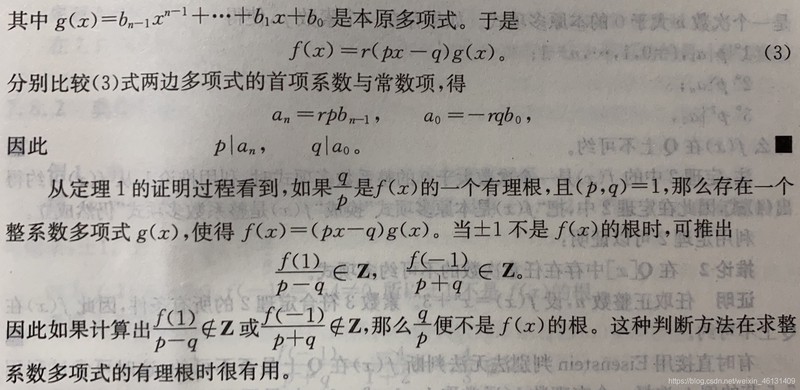 其中 g(x)=bₙ₋₁xⁿ⁻¹+⋯+b₁x+b₀ 是本原多项式。于是
f(x)=r(px-q)g(x)。 (3)
分别比较(3)式两边多项式的首项系数与常数项,得
aₙ=rpbₙ₋₁, a₀=-rqb₀,
因此 p|aₙ, q|a₀。 ■
从定理 1 的证明过程看到,如果 q/p 是 f(x)的一个有理根,且(p,q)=1,那么存在一个
整系数多项式 g(x),使得 f(x)=(px-q)g(x)。当±1 不是 f(x)的根时,可推出
f(1)/(p-q) ∈ Z, f(-1)/(p+q) ∈ Z。
因此如果计算出 f(1)/(p-q) ∉ Z 或 f(-1)/(p+q) ∉ Z,那么 q/p 便不是 f(x)的根。这种判断方法在求整
系数多项式的有理根时很有用。
https://blog.csdn.net/weixin_46131409